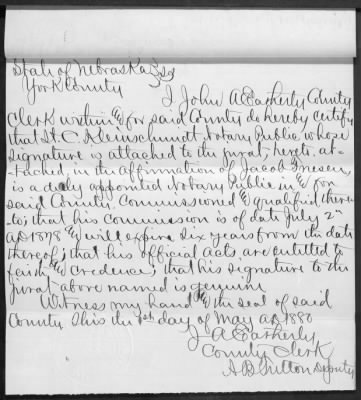 State of Nebraska } ss
York County
I John A Eatherly County
Clerk within & for said County do hereby certify
that H. C. Kleinschmidt Notary Public whose
signature is attached to the jurat, hereto at-
tached, in the affirmation of Jacob
is a duly appointed Notary Public in & for
said County, Commissioned & qualified there-
to; that his commission is of date July 2nd
AD 1878 & will expire six years from the date
thereof; that his official acts are entitled to
faith & credence; that his signature to the
jurat above named is genuine
Witness my hand & the seal of said
County. This the 1st day of May AD 1880
J A Eatherly
County Clerk
A B Deputy